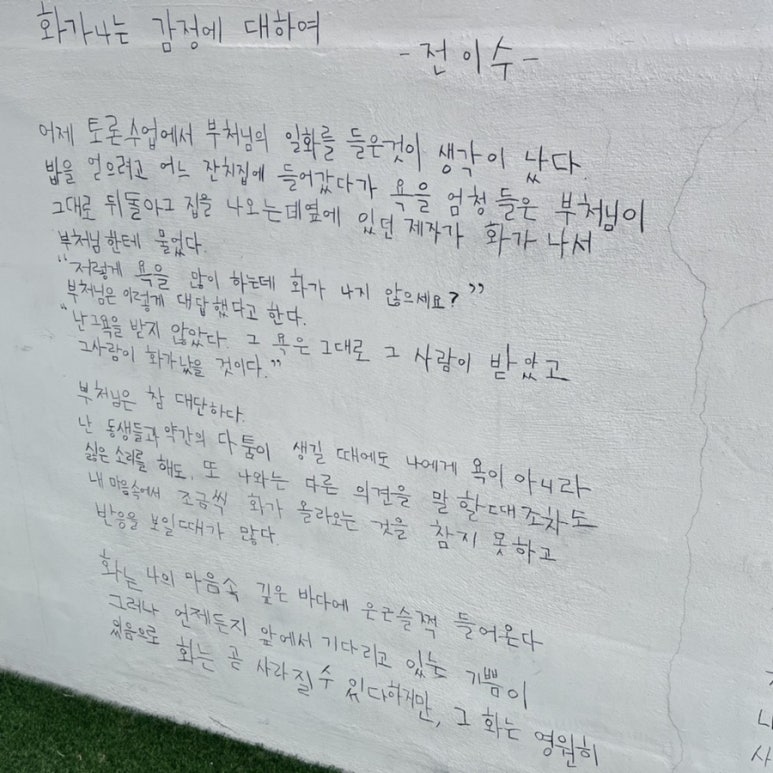 화가나는 감정에 대하여
- 전이수 -
어제 토론수업에서 부처님의 일화를 들은것이 생각이 났다.
밥을 얻으려고 어느 잔치집에 들어갔다가 욕을 엄청 들은 부처님이
그대로 뒤돌아 그 집을 나오는데 옆에 있던 제자가 화가 나서
부처님한테 물었다.
“저렇게 욕을 많이 하는데 화가 나지 않으세요?”
부처님은 이렇게 대답했다고 한다.
“난 그욕을 받지 않았다. 그 욕은 그대로 그 사람이 받았고
그사람이 화가났을 것이다.”
부처님은 참 대단하다.
난 동생들과 약간의 다툼이 생길 때에도 나에게 욕이 아니라
싫은 소리를 해도, 또 나와는 다른 의견을 말할때조차도
내 마음속에서 조금씩 화가 올라오는 것을 참지 못하고
반응을 보일때가 많다.
화는 나의 마음속 깊은 바다에 은근슬쩍 들어온다
그러나 언제든지 앞에서 기다리고 있는 기쁨이
있음으로 화는 곧 사라질 수 있다하지만, 그 화는 영원히
나
사